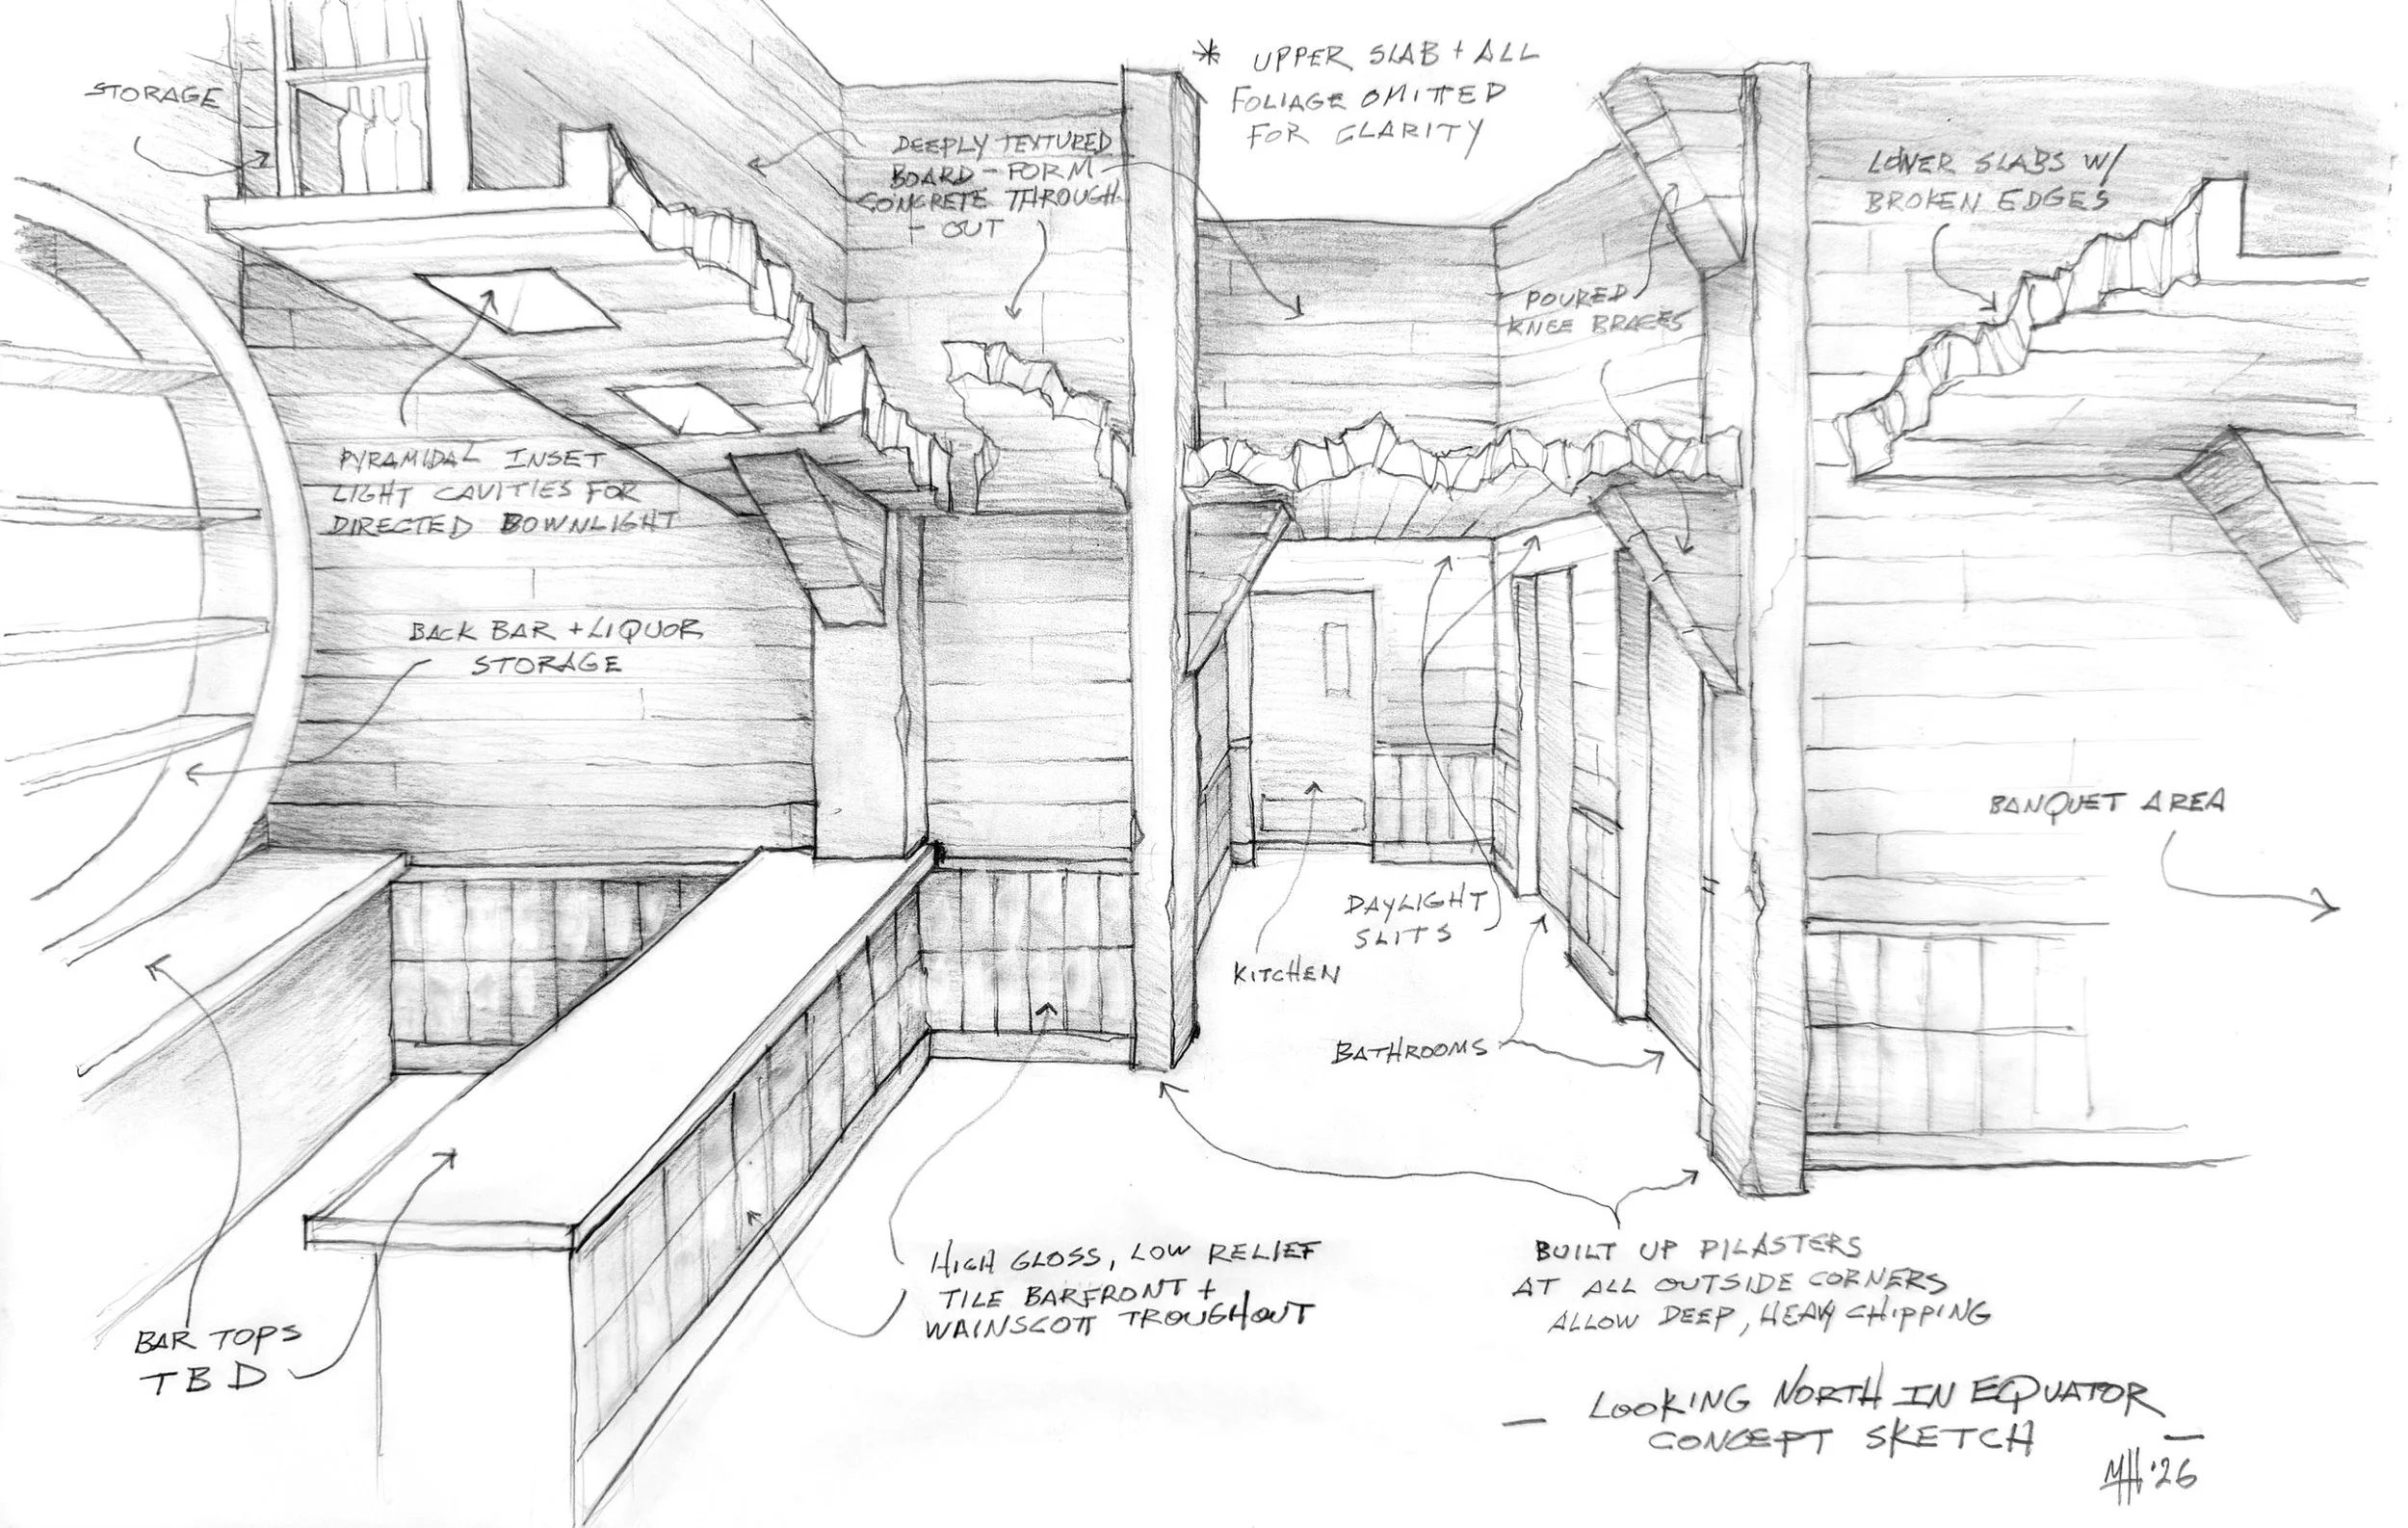 STORAGE
* UPPER SLAB + ALL
FOLIAGE OMITTED
FOR CLARITY
DEEPLY TEXTURED
BOARD-FORM
CONCRETE THROUGH-
- OUT
LOWER SLABS W/
BROKEN EDGES
POURED
KNEE BRACES
PYRAMIDAL INSET
LIGHT CAVITIES FOR
DIRECTED DOWNLIGHT
BACK BAR + LIQUOR
STORAGE
BANQUET AREA
DAYLIGHT
SLITS
KITCHEN
BATHROOMS
HIGH GLOSS, LOW RELIEF
TILE BARFRONT +
WAINSCOTT TROUGHOUT
BUILT UP PILASTERS
AT ALL OUTSIDE CORNERS
ALLOW DEEP, HEAVY CHIPPING
BAR TOPS
TBD
— LOOKING NORTH IN EQUATOR
CONCEPT SKETCH —
MH '26